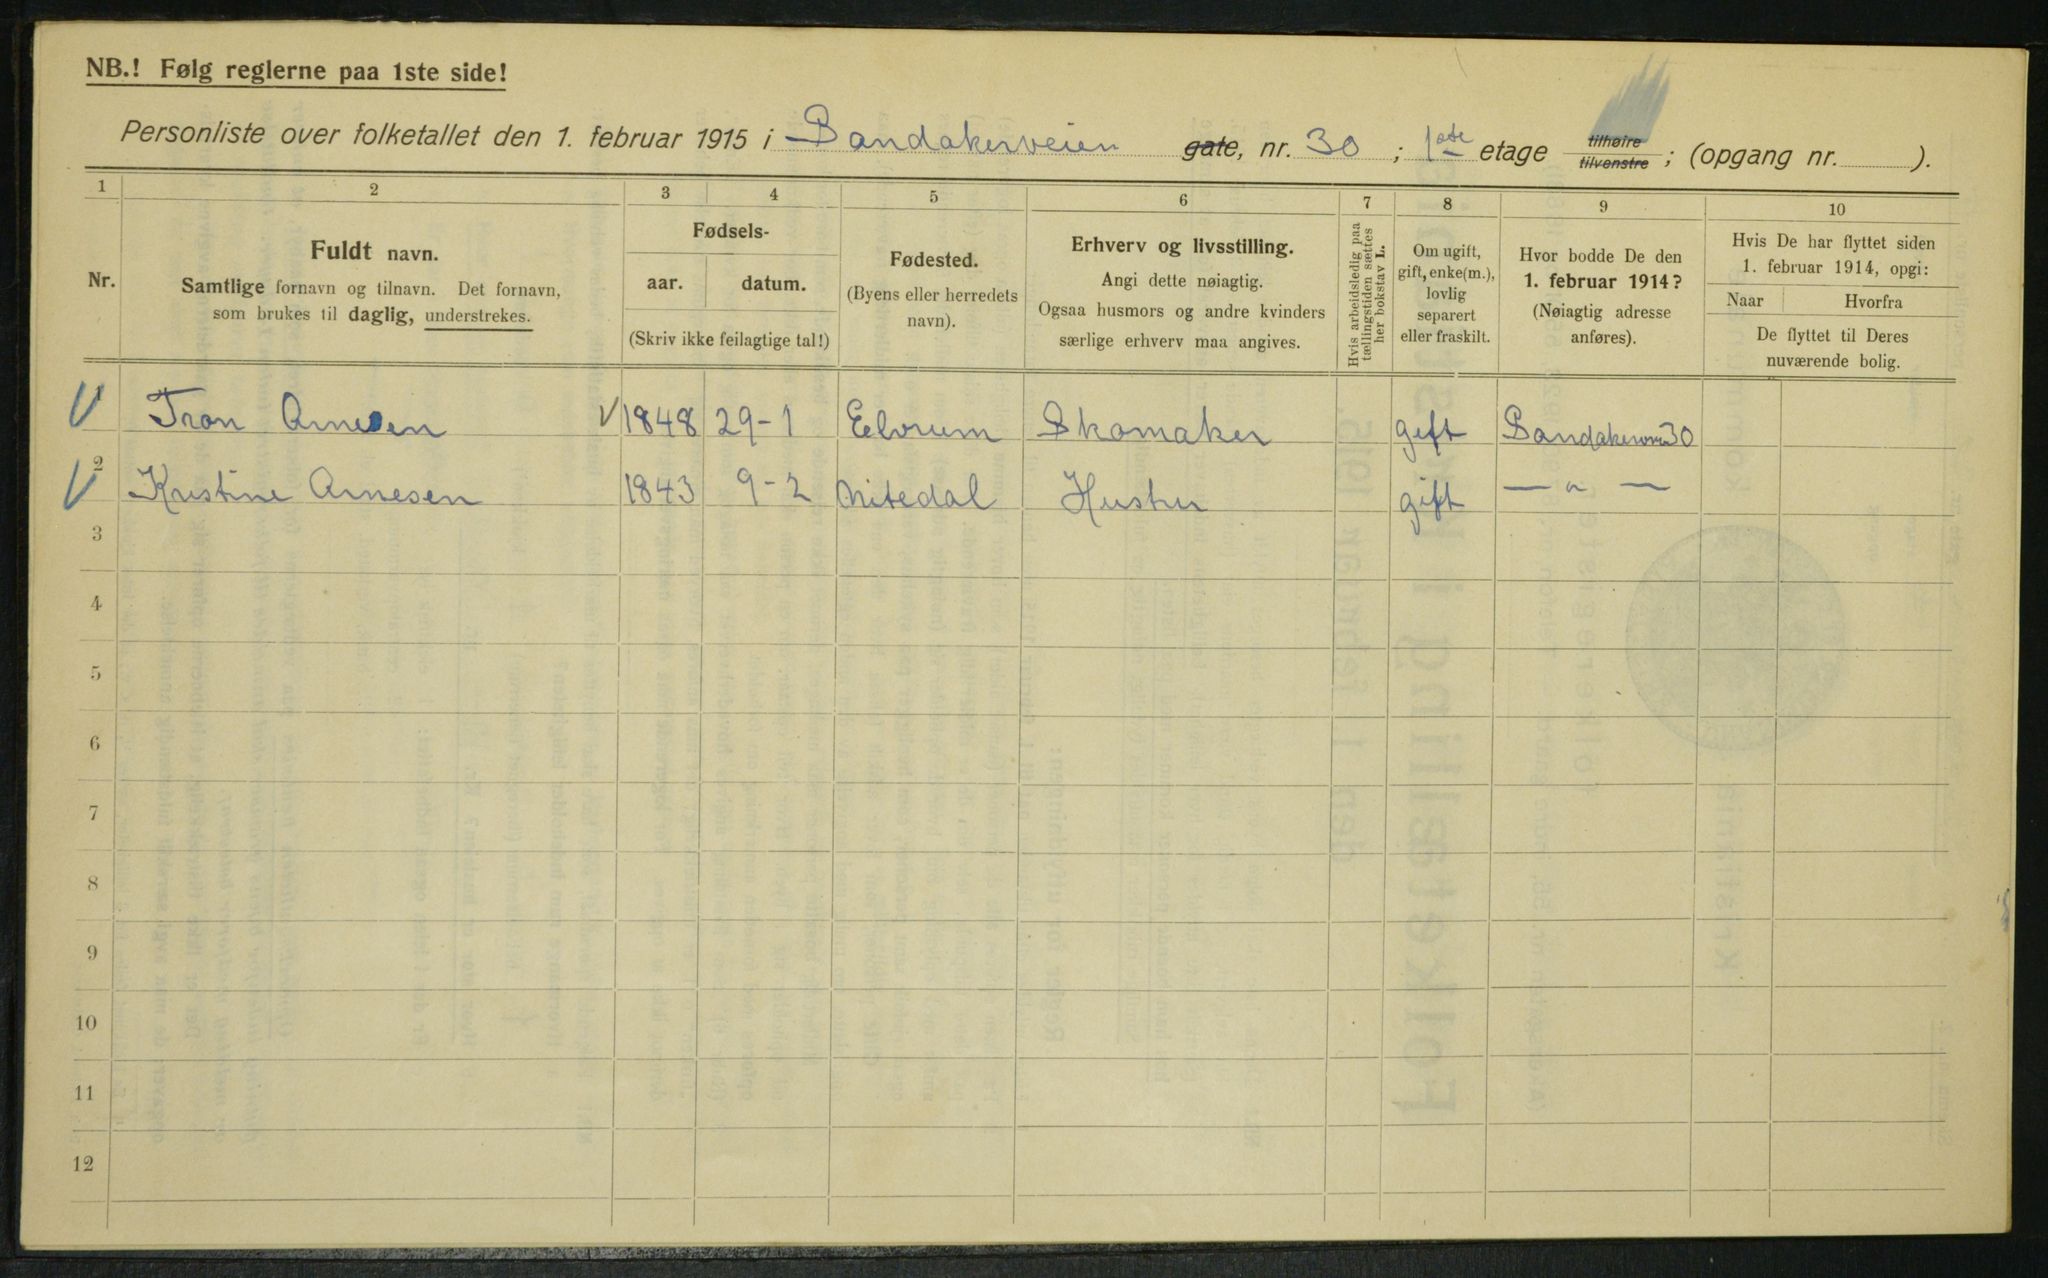 NB.! Følg reglerne paa 1ste side!
Personliste over folketallet den 1. februar 1915 i Sandakerveien gate, nr. 30 ; 1ste etage tilhøire tilvenstre ; (opgang nr. ).
1 2 3 4 5 6 7 8 9 10
Nr.
Fuldt navn.
Samtlige fornavn og tilnavn. Det fornavn,
som brukes til daglig, understrekes.
Fødsels-
aar. datum.
(Skriv ikke feilagtige tal!)
Fødested.
(Byens eller herredets
navn).
Erhverv og livsstilling.
Angi dette nøiagtig.
Ogsaa husmors og andre kvinders
særlige erhverv maa angives.
Hvis arbeidsledig paa
tællingstiden sættes
her bokstav L.
Om ugift,
gift, enke(m.),
lovlig
separert
eller fraskilt.
Hvor bodde De den
1. februar 1914?
(Nøiagtig adresse
anføres).
Hvis De har flyttet siden
1. februar 1914, opgi:
Naar Hvorfra
De flyttet til Deres
nuværende bolig.
1 Tron Arnesen 1848 29-1 Elvrum Skomaker gift Sandakerveien 30
2 Kristine Arnesen 1843 9-2 Nitedal Hustru gift — " —
3
4
5
6
7
8
9
10
11
12